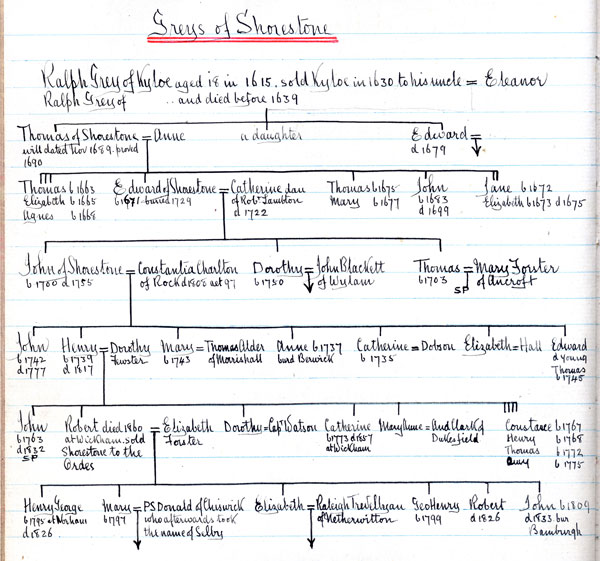 Greys of Shorestone
Ralph Grey of Kyloe aged 18 in 1615. sold Kyloe in 1630 to his uncle = Eleanor
Ralph Grey of .. and died before 1639
Thomas of Shorestone = Anne a daughter Edward =
will dated Nov 1689. proved d 1679
1690
Thomas b 1663 Edward of Shorestone = Catherine dau Thomas b 1675 John Jane b 1672
Elizabeth b 1665 b 1671 buried 1729 of Robt Lambton Mary b 1677 b 1683 Elizabeth b 1673 d 1675
Agnes b 1668 d 1722 d 1699
John of Shorestone = Constantia Charlton Dorothy = John Blackett Thomas = Mary Forster
b 1700 d 1755 of Rock d 1808 aet 97 b 1750 of Wylam b 1703 of Ancroft
SP
John Henry = Dorothy Mary = Thomas Alder Anne b 1737 Catherine = Dobson Elizabeth = Hall Edward
b 1742 b 1739 Forster b 1743 of Morishall burd Berwick b 1735 d young
d 1777 d 1817 Thomas
b 1745
John Robert died 1860 = Elizabeth Dorothy = Capt Watson Catherine Mary Anne = And Clark of Constance b 1767
b 1763 at Wickham. sold Forster b 1773 d 1857 Dukesfield Henry b 1768
d 1832 Shorestone to the at Wickham Thomas b 1772
SP Ordes b 1775
Henry George Mary = PS Donald of Chiswick Elizabeth = Raleigh Trevellyan Geo Henry Robert John b 1809
b 1795 at Norham b 1797 who afterwards took of Netherwitton b 1799 d 1826 d 1833 bur
d 1826 the name of Selby Bamburgh